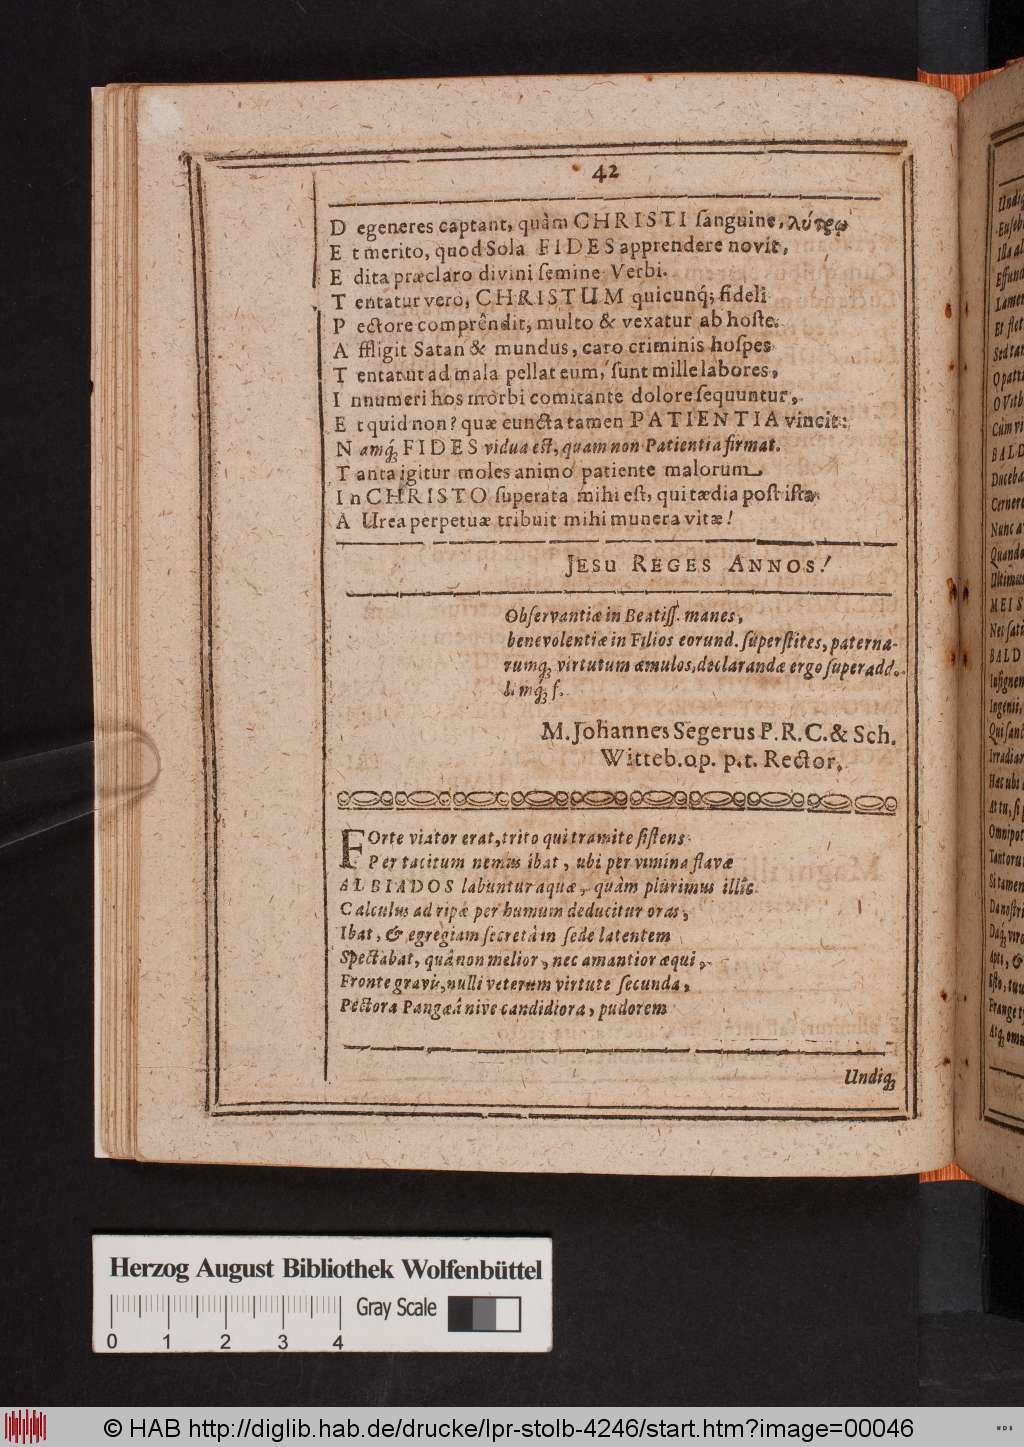 42
D egeneres captant, quàm CHRISTI ſanguine, λύτρῳ
E t merito, quod Sola FIDES apprendere novit,
E dita præclaro divini ſemine Verbi.
T entatur verò, CHRISTUM quicunq́; fideli
P ectore comprêndit, multo & vexatur ab hoſte.
A ffligit Satan & mundus, caro criminis hoſpes
T entatut ad mala pellat eum, ſunt mille labores,
I nnumeri hos morbi comitante dolore ſequuntur,
E t quid non? quæ cuncta tamen PATIENTIA vincit:
N amq́; FIDES vidua eſt, quam non Patientia firmat.
T anta igitur moles animo patiente malorum
I n CHRISTO ſuperata mihi eſt, qui tædia poſt iſta
A Urea perpetuæ tribuit mihi munera vitæ!
JESU REGES ANNOS!
Obſervantiæ in Beatiſſ. manes,
benevolentiæ in Filios eorund. ſuperſtites, paterna-
rumq; virtutum æmulos, declarandæ ergo ſuperadd.
l. mq́; ſ.
M. Johannes Segerus P. R. C. & Sch.
Witteb. op. p. t. Rector.
FOrte viator erat, trito qui tramite ſiſtens
Per tacitum nemus ibat, ubi per vimina flavæ
ALBIADOS labuntur aquæ, quàm plurimus illîc
Calculus ad ripæ per humum deducitur oras,
Ibat, & egregiam ſecretâ in ſede latentem
Spectabat, quâ non melior, nec amantior æqui,
Fronte gravis, nulli veterum virtute ſecunda,
Pectora Pangæâ nive candidiora, pudorem
Undiq;
Herzog August Bibliothek Wolfenbüttel
Gray Scale
0 1 2 3 4
© HAB http://diglib.hab.de/drucke/lpr-stolb-4246/start.htm?image=00046